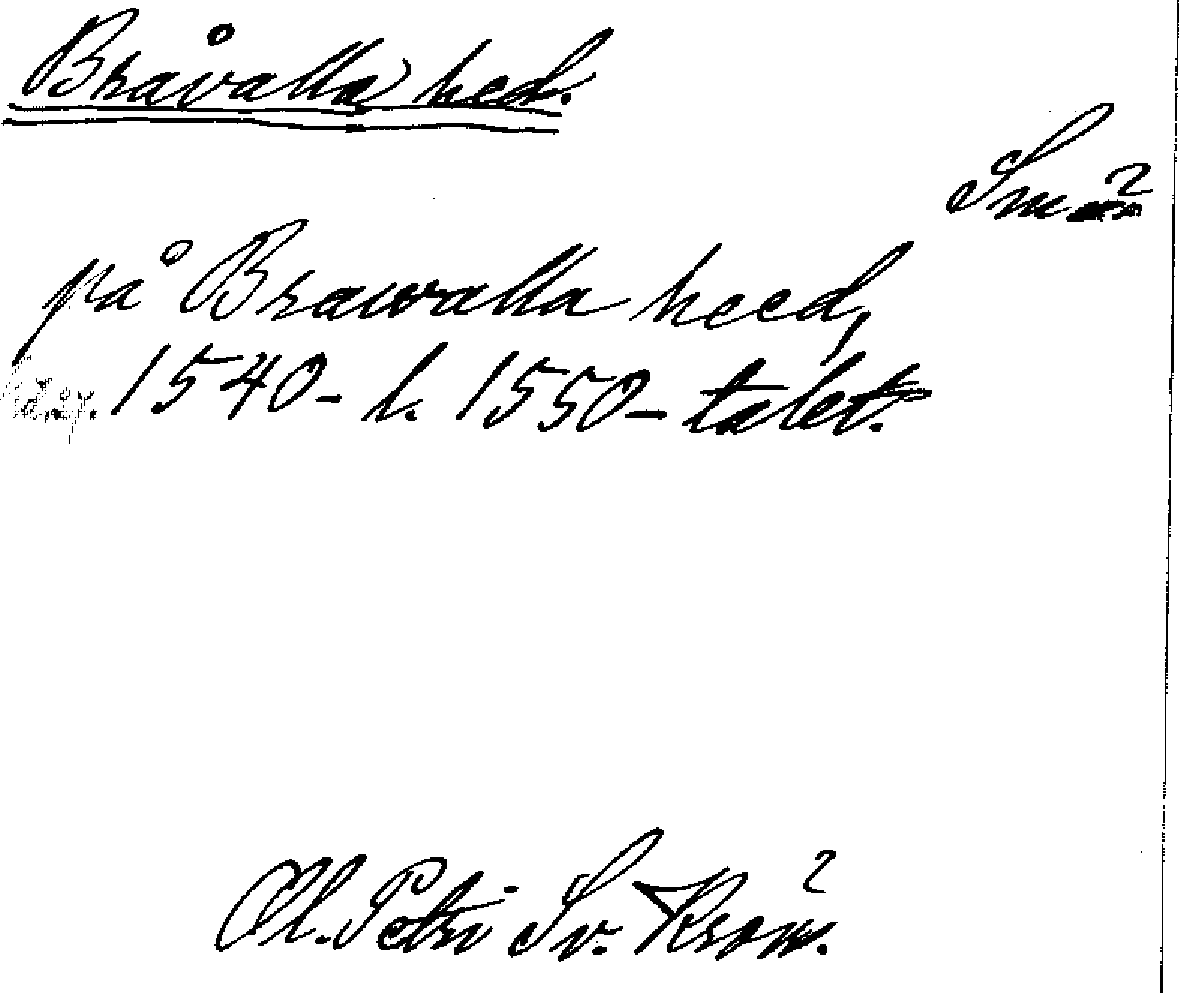 Bråvalla hed.
Sm
på Brawalla heed,
1540- l. 1550-talet.
Ol. Petri Sv. Krön.